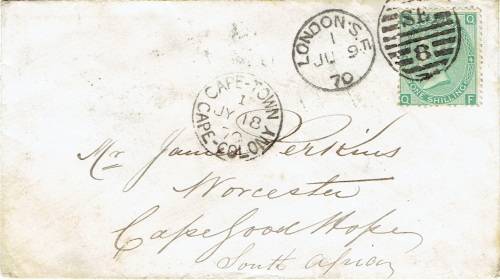 LONDON·S.E
1
JU 9
70
S.E.
8
Q
ONE SHILLING
Q F
CAPE-TOWN
1
JY 18
70
CAPE-COLONY
Mr James Perkins
Worcester
Cape Good Hope
South Africa